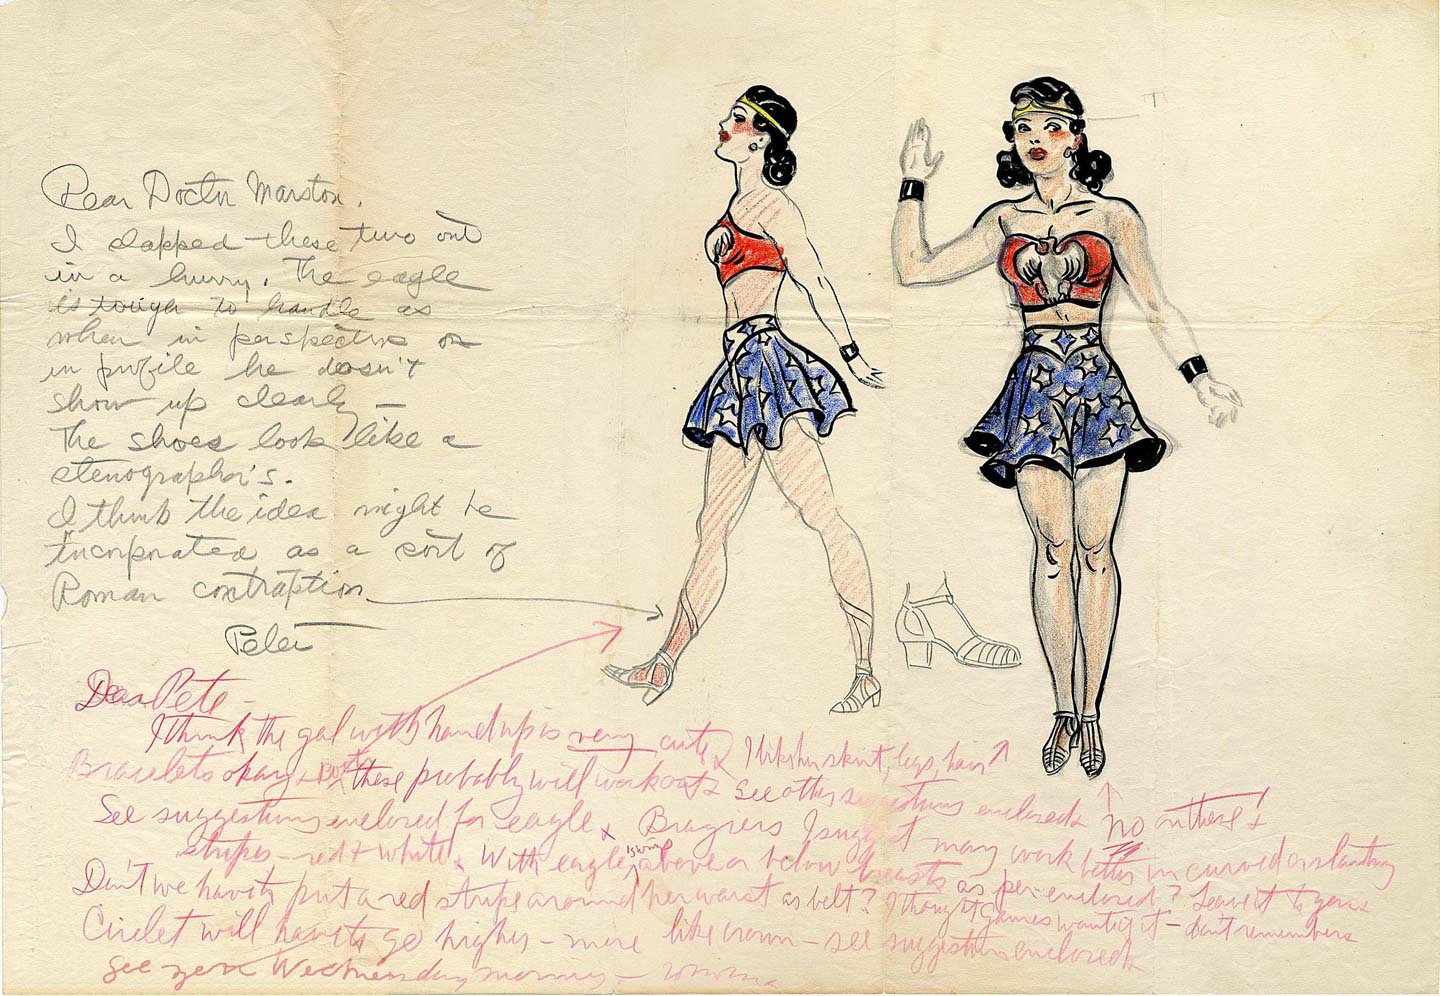 Dear Doctor Marston,
I slapped these two out
in a hurry. The eagle
is tough to handle as
when in perspective or
in profile he doesn't
show up clearly —
The shoes look like a
stenographer's.
I think the idea might be
incorporated as a sort of
Roman contraption.
Peter
Dear Pete –
I think the gal with hand up is very cute. I like her skirt, legs, hair.
Bracelets okay + boots these probably will work out. See other suggestions enclosed. No on these!
See suggestions enclosed for eagle. I suggest may work better in curved or slanting
stripes – red + white. With eagle's wings above or below breasts as per enclosed? Leave it to you.
Don't we have to put a red stripe around her waist as belt? I thought Gaines wanted it – don't remember.
Circlet will have to go higher – more like crown – see suggestions enclosed.
See you Wednesday morning –